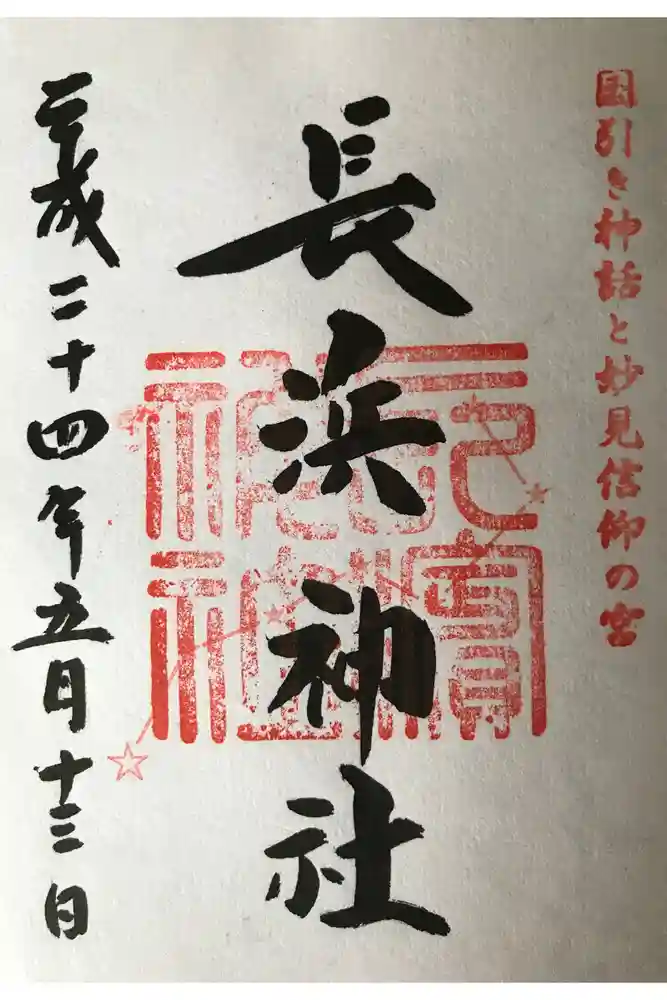 國引き神話と妙見信仰の宮
長浜神社
長濱神社
平成二十四年五月十三日